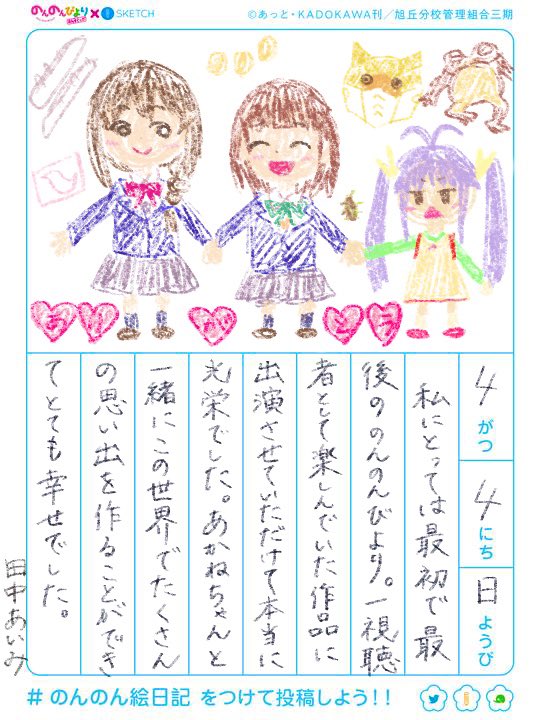 のんのんびより のんすとっぷ × SKETCH
©あっと・KADOKAWA刊／旭丘分校管理組合三期
ありがとう
4がつ
4にち
日ようび
私にとっては最初で最
後ののんのんびより。一視聴
者として楽しんでいた作品に
出演させていただけて本当に
光栄でした。あかねちゃんと
一緒にこの世界でたくさん
の思い出を作ることができ
てとても幸せでした。
田中あいみ
#のんのん絵日記 をつけて投稿しよう!!